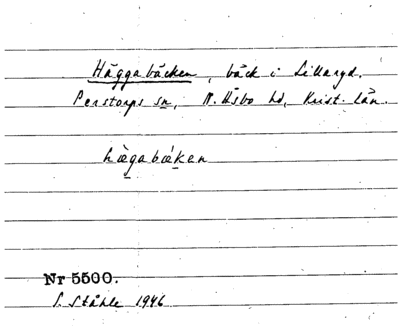 Häggabäcken, bäck i Lillaryd.
Perstorps sn, N. Åsbo hd, Krist. län.
hä̀gabä́ken
Nr 5500.
S. Ståhle 1946